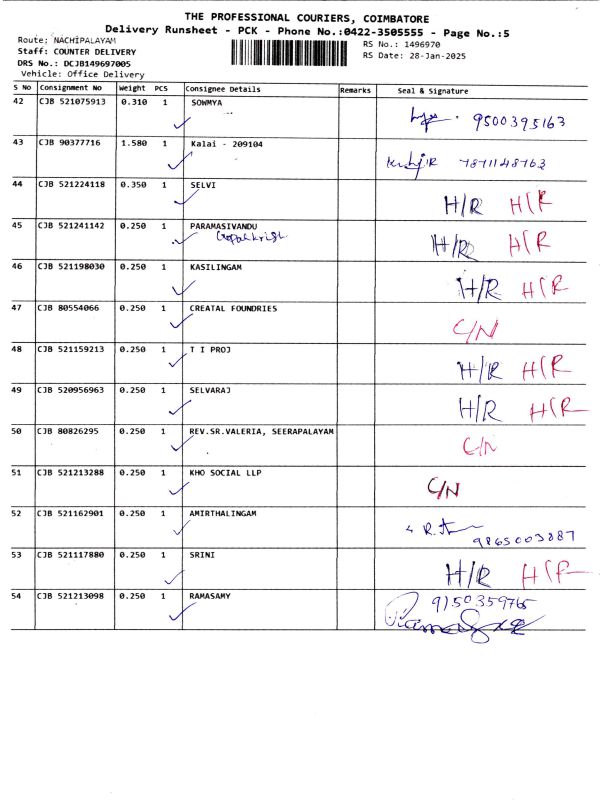 THE PROFESSIONAL COURIERS, COIMBATORE
Delivery Runsheet - PCK - Phone No.:0422-3505555 - Page No.:5
Route: NACHIPALAYAM
RS No.: 1496970
Staff: COUNTER DELIVERY
RS Date: 28-Jan-2025
DRS No.: DCJB149697005
Vehicle: Office Delivery
S No Consignment No Weight PCS Consignee Details Remarks Seal & Signature
42 CJB 521075913 0.310 1 SOWMYA
9500395163
43 CJB 90377716 1.580 1 Kalai - 209104
7871148763
44 CJB 521224118 0.350 1 SELVI
H/R H(R
45 CJB 521241142 0.250 1 PARAMASIVANDU
H/R H(R
46 CJB 521198030 0.250 1 KASILINGAM
H/R H(R
47 CJB 80554066 0.250 1 CREATAL FOUNDRIES
C/N
48 CJB 521159213 0.250 1 T I PROJ
H/R H(R
49 CJB 520956963 0.250 1 SELVARAJ
H/R H(R
50 CJB 80826295 0.250 1 REV.SR.VALERIA, SEERAPALAYAM
C/N
51 CJB 521213288 0.250 1 KHO SOCIAL LLP
C/N
52 CJB 521162901 0.250 1 AMIRTHALINGAM
9865003887
53 CJB 521117880 0.250 1 SRINI
H/R H(R
54 CJB 521213098 0.250 1 RAMASAMY
9150359765